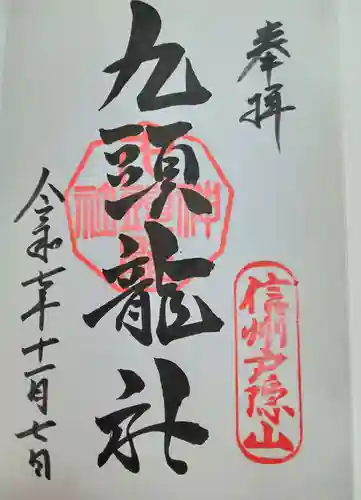 奉拝
信州戸隠山
九頭龍社
令和七年十一月七日